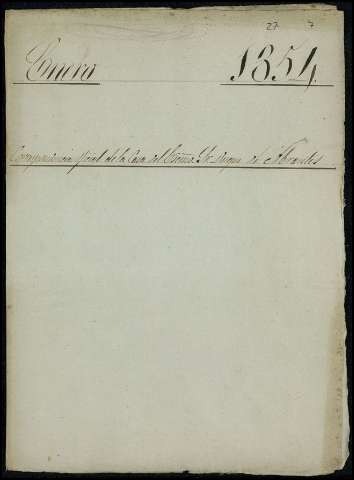 27 7
Enero 1854
Correspondencia oficial de la Casa del Excmo. Sr. Duque de Abrantes